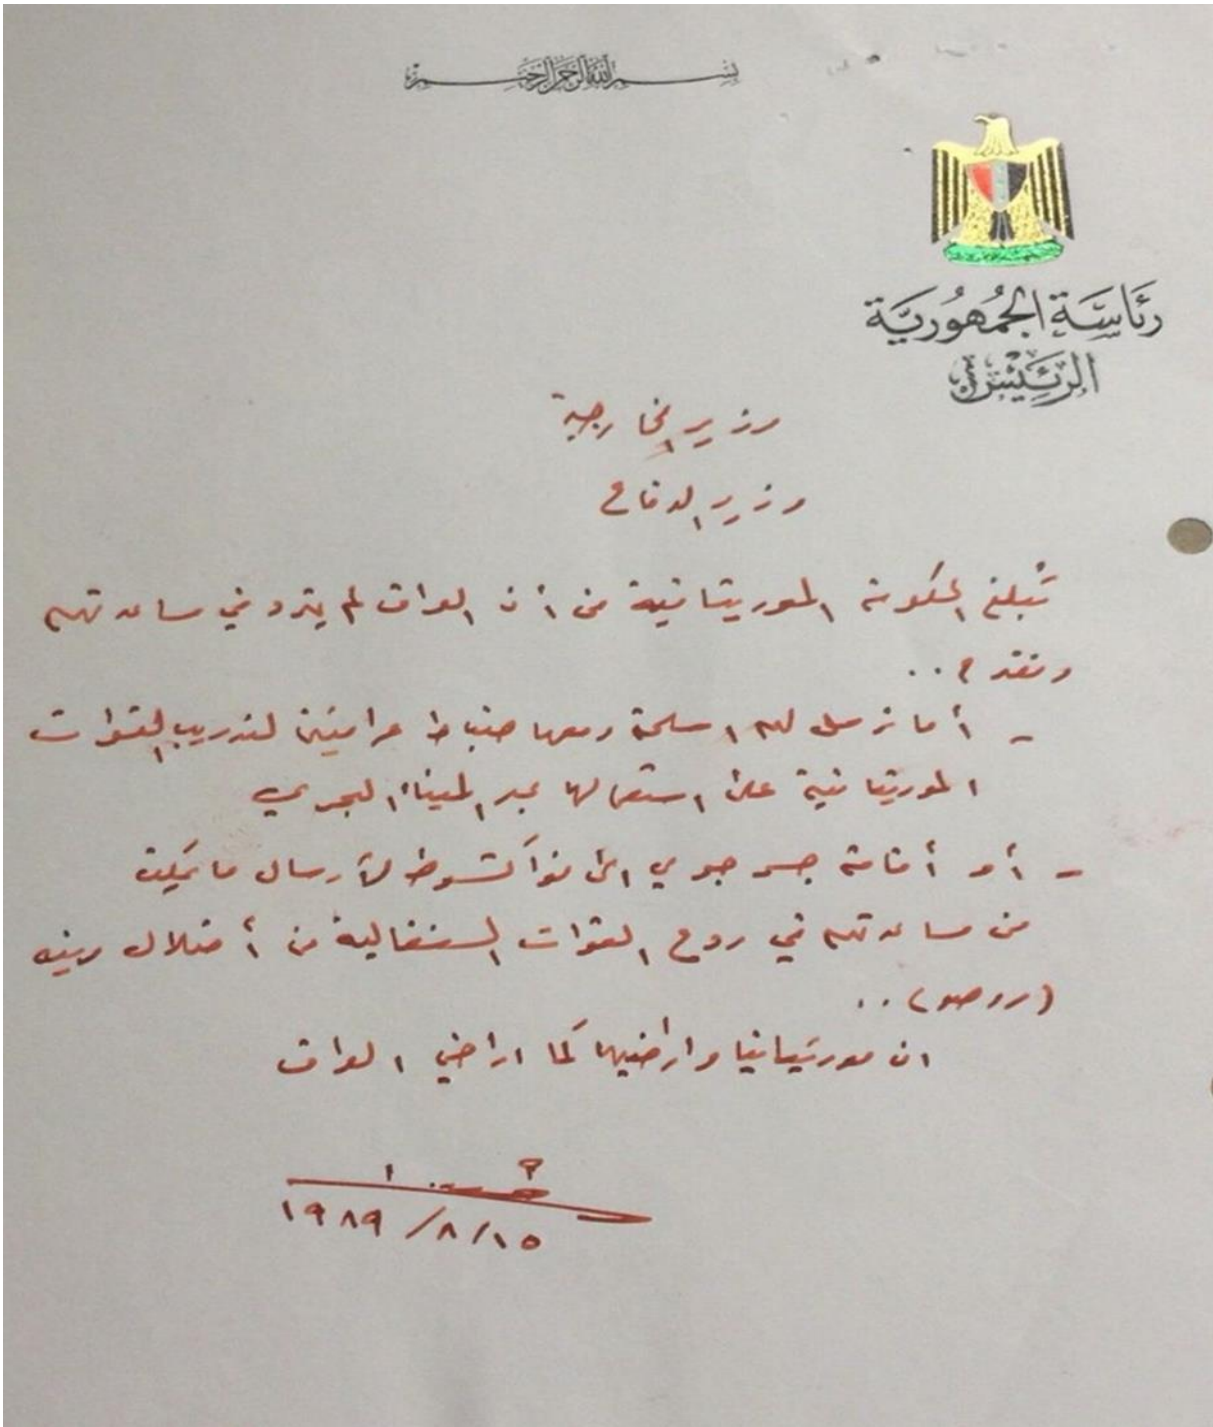 بسم الله الرحمن الرحيم
رئاسة الجمهورية
الرئيس
وزير الخارجية
وزير الدفاع
تبلغ الحكومة الموريتانية من أن العراق لم يتردد في مساعدتهم
ونقدم ..
- أما نرسل لهم اسلحة ومعها ضباط عراقيين لتدريب القوات
الموريتانية على استعمالها عبر الميناء البحري
- أو أقامة جسر جوي الى نواكشوط لأرسال ما يمكن
من مساعدتهم في ردع القوات السنغالية من أحتلال مدينة
(روصو) ..
ان موريتانيا واراضيها كما اراضي العراق
١٩٨٩/٨/١٥